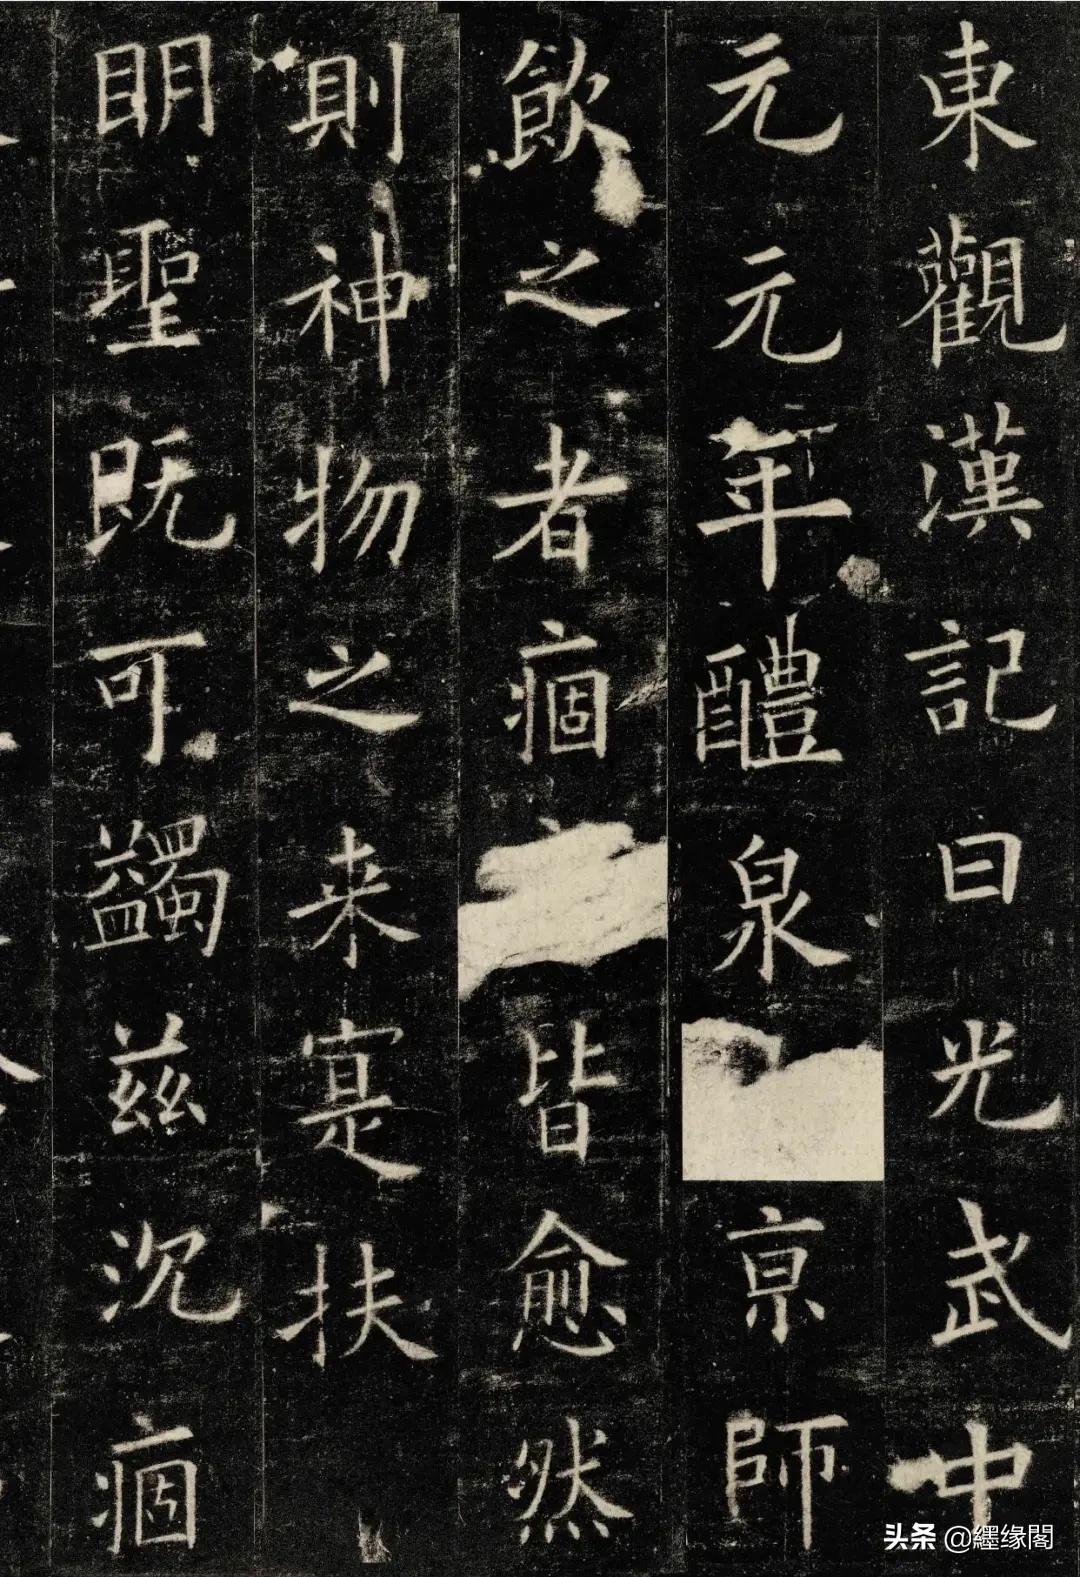 東觀漢記曰光武中
元元年醴泉京師
飲之者痼皆愈然
則神物之来寔扶
明聖既可蠲兹沉痼
头条 @纆缘閣